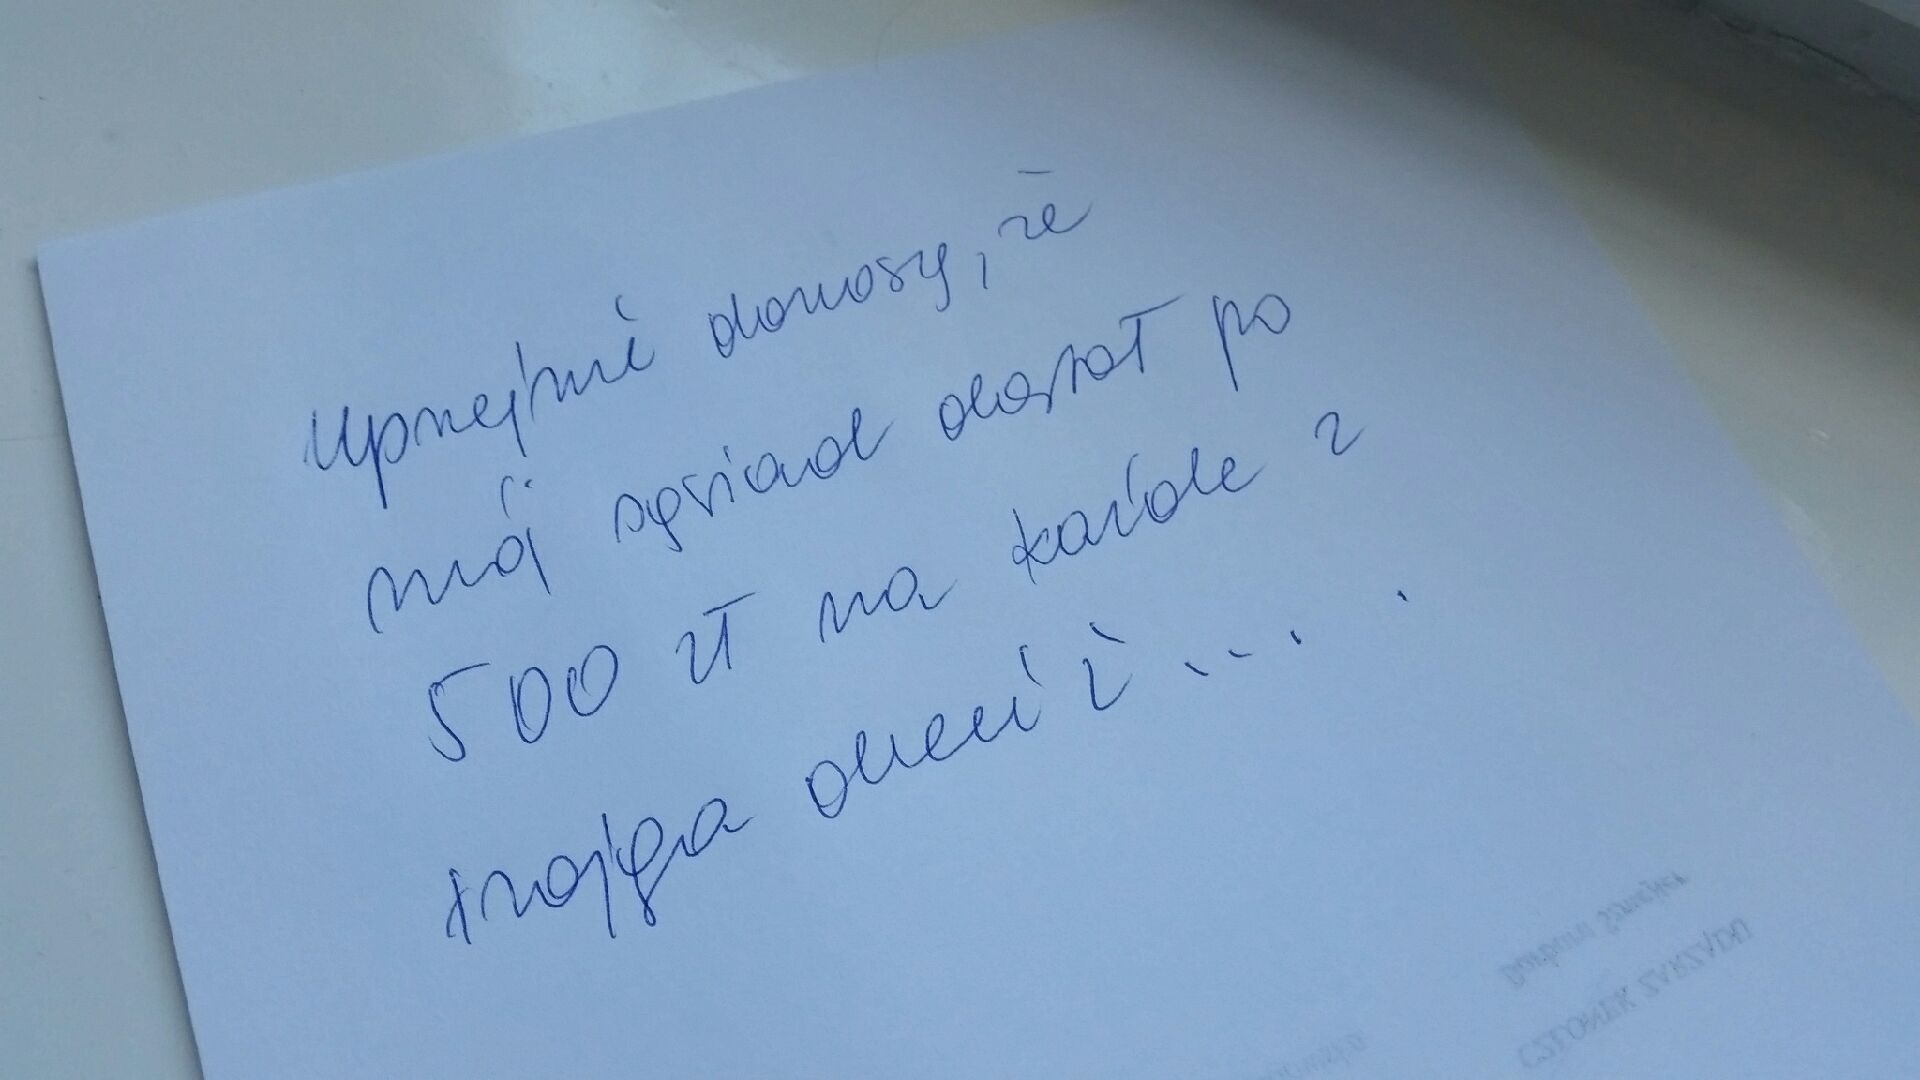 Uprzejmie donoszę, że
mój sąsiad dostał po
500 zł na każde z
trojga dzieci i ... .
CZŁONEK ZARZĄDU